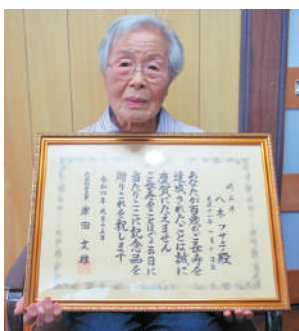 祝状
八木フサヱ殿
あなたが百歳のご長寿を
達成されたことは誠に
慶賀にたえません
ここに長寿をことほぐ日に
当たりここに記念品を
贈りこれを祝します
内閣総理大臣 岸田文雄